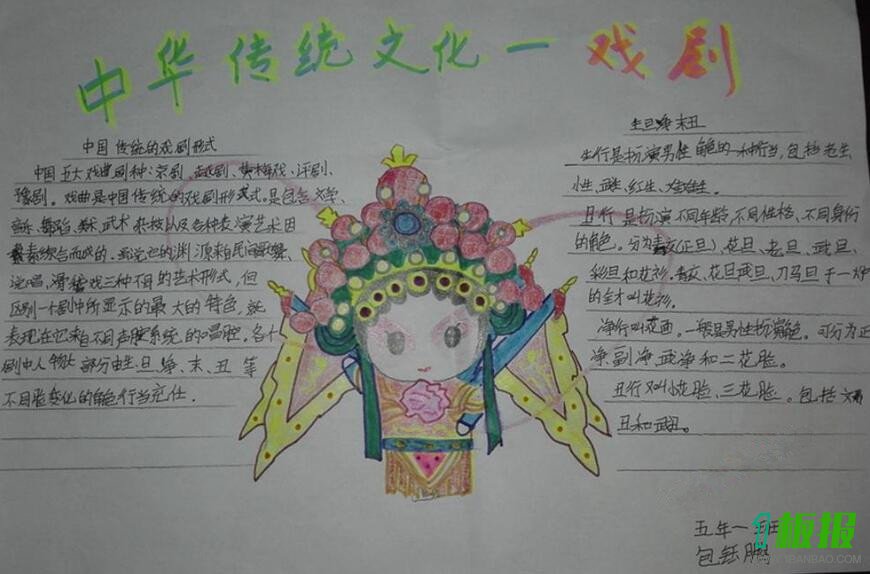 中华传统文化一戏剧
中国传统的戏剧形式
中国五大戏曲剧种:京剧、越剧、黄梅戏、评剧、
豫剧。戏曲是中国传统的戏剧形式。是包含文学、
音乐、舞蹈、美术、武术、杂技以及各种表演艺术因
素综合而成的。的渊源来自民间歌舞、
说唱、滑稽戏三种不同的艺术形式,但
区别一个剧中所显示的最大的特色,就
表现在它来自不同声腔系统的唱腔。各个
剧中人物大部分由生、旦、净、末、丑等
不同脸变化的角色行当充任。
生旦净末丑
生行是扮演男性角色的一种行当,包括老生、
小生、武生、红生、娃娃生。
旦行是扮演不同年龄,不同性格、不同身份
的角色。分为青衣(正旦)、花旦、老旦、武旦、
彩旦和花衫。青衣、花旦武旦、刀马旦于一炉
的全才叫花衫。
净行叫花面。一般是男性扮演角色。可分为正
净、副净、武净和二花脸。
丑行叫小花脸、三花脸。包括文
丑和武丑。
五年一班
包钰鹏
板报
WWW.1BANBAO.COM